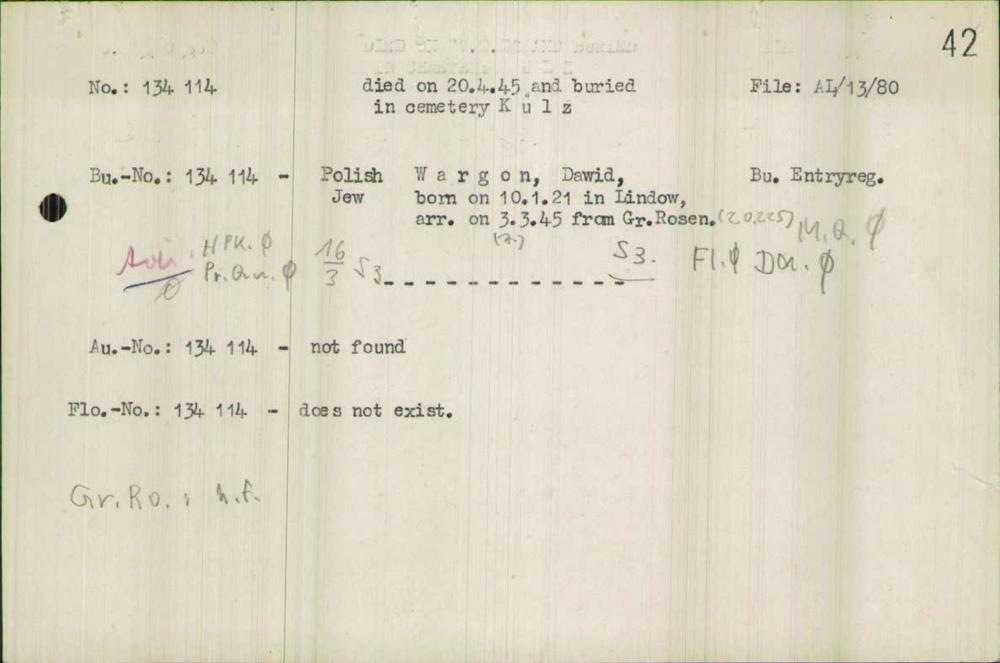 42
No.: 134 114 died on 20.4.45 and buried File: AL/13/80
in cemetery K u l z
Bu.-No.: 134 114 - Polish W a r g o n, Dawid, Bu. Entryreg.
Jew born on 10.1.21 in Lindow,
arr. on 3.3.45 from Gr.Rosen. (20.225) M.Q. Ø
(?.)
HPK. Ø 16/3 S3 S3. Fl. Ø Da. Ø
Pr.Qu. Ø
Au.-No.: 134 114 - not found
Flo.-No.: 134 114 - does not exist.
Gr.Ro.: n.f.